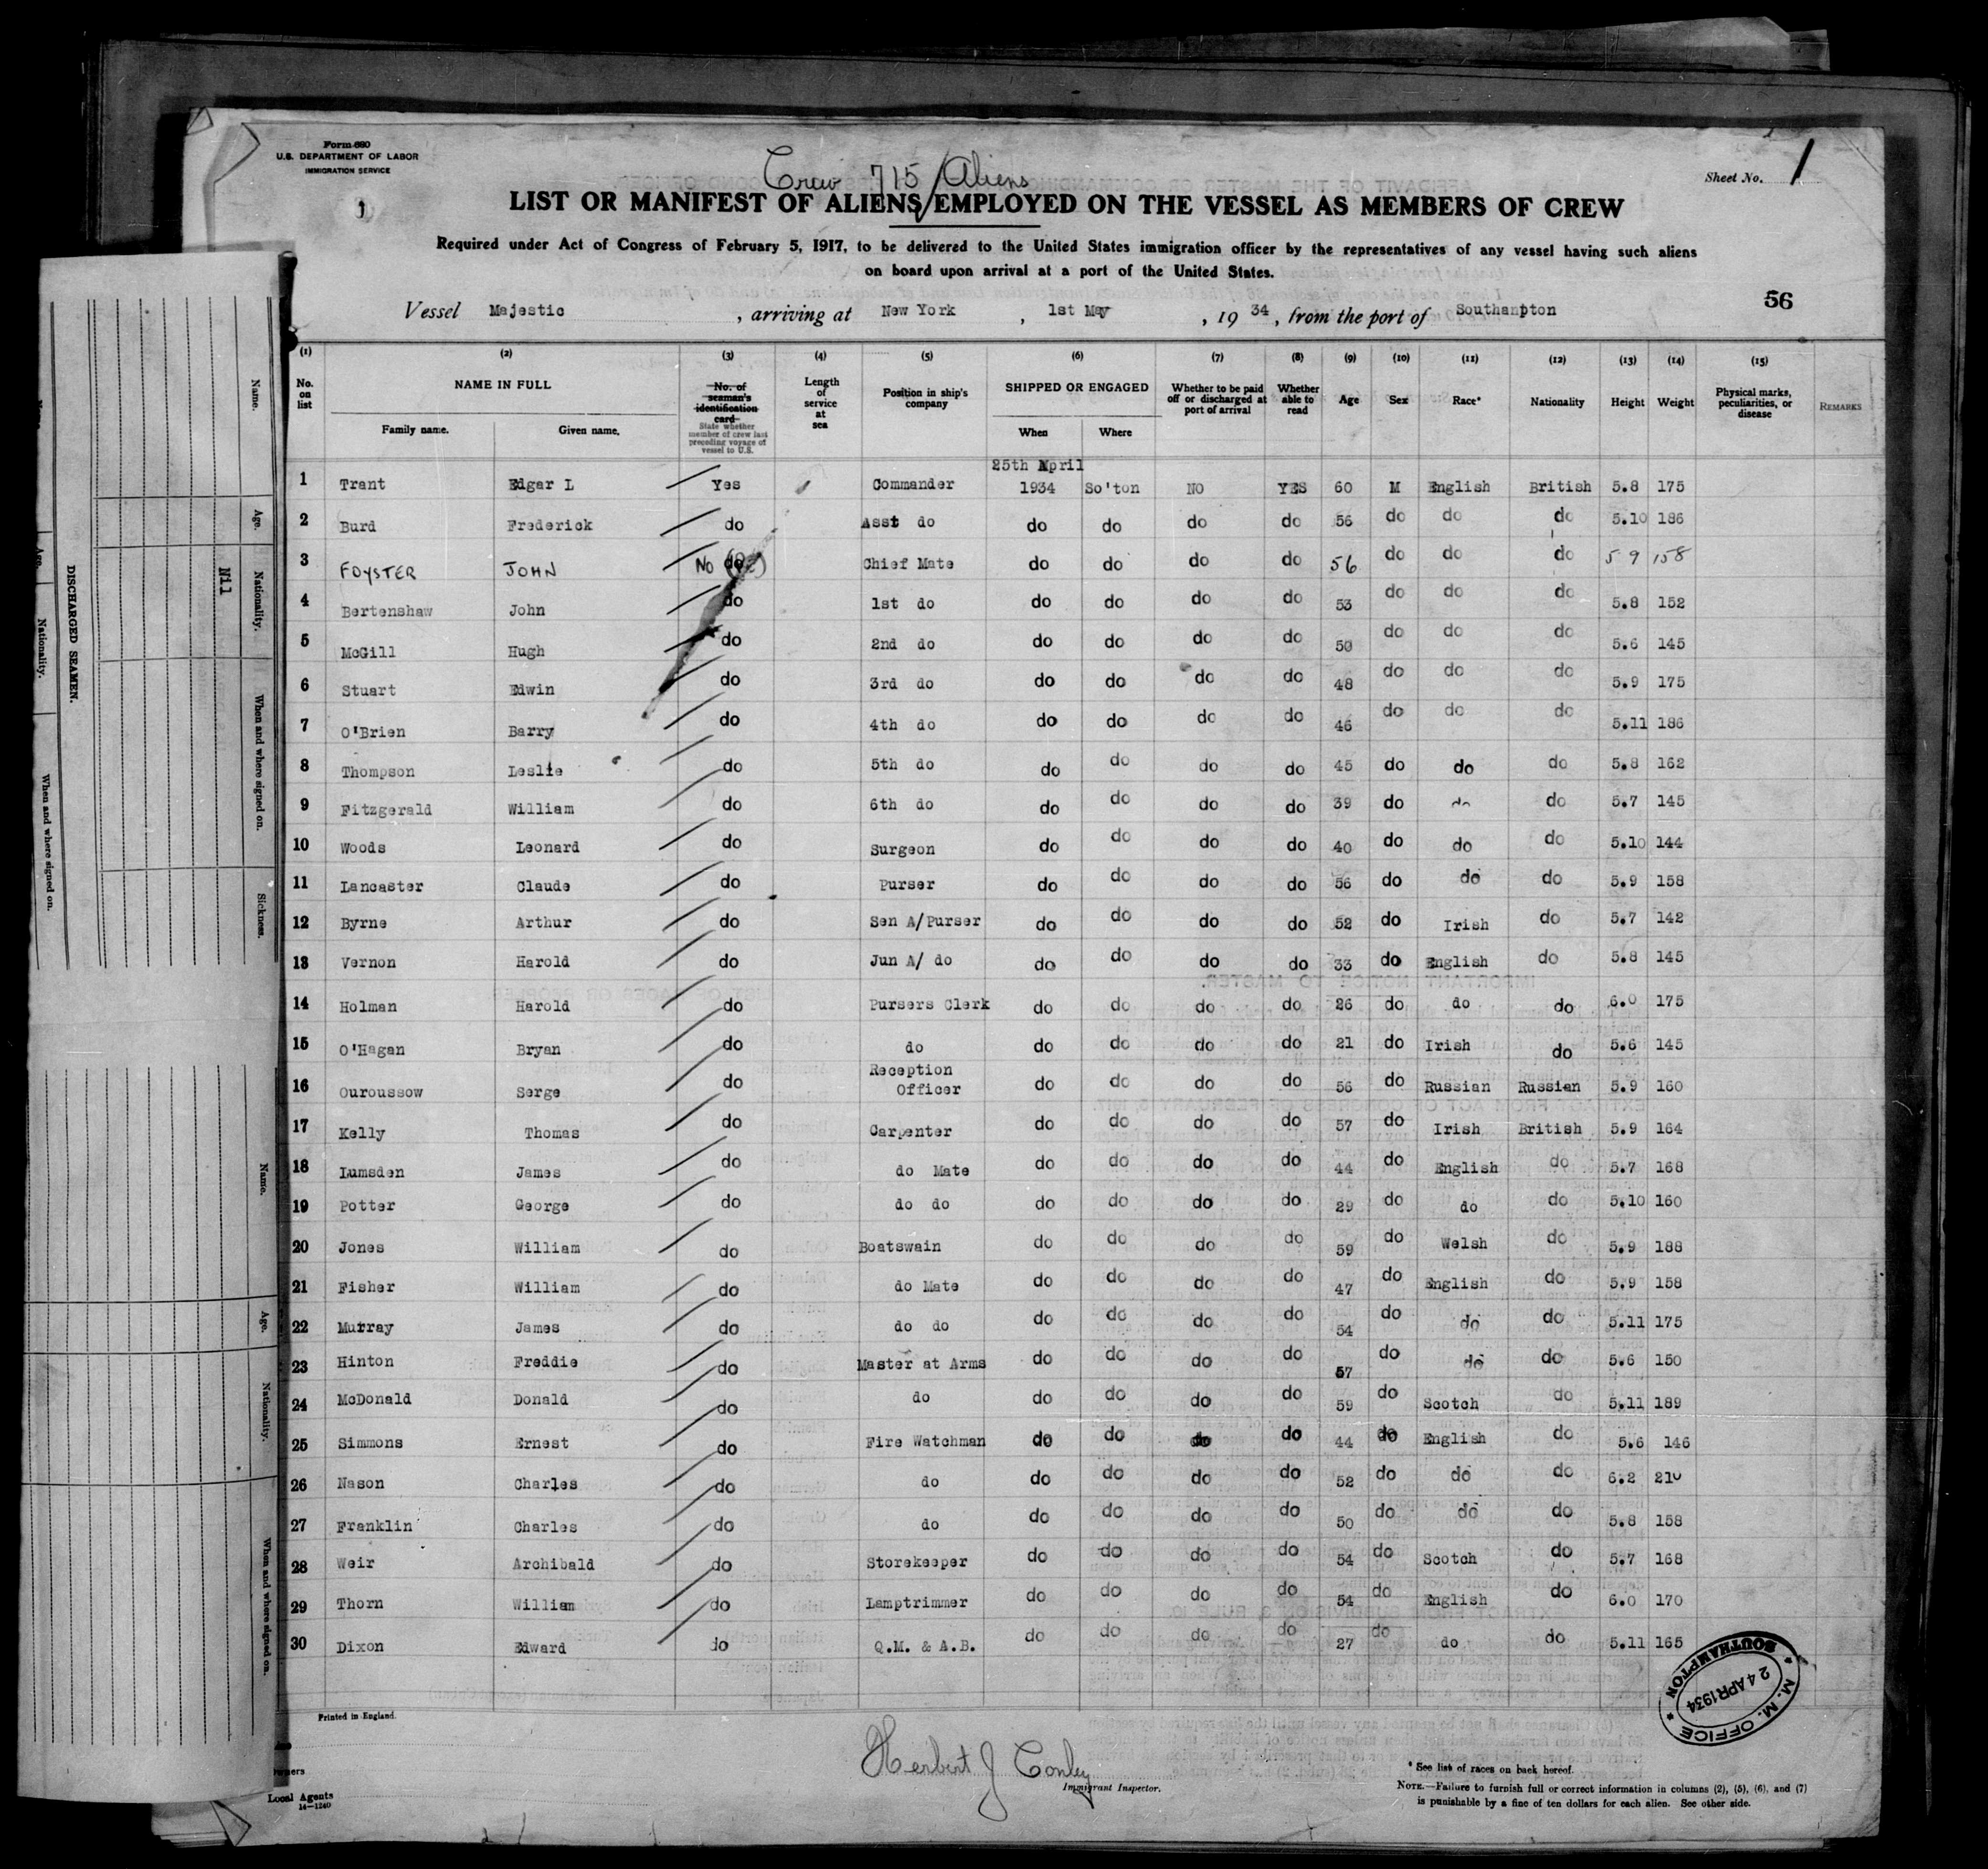 Form 680
U.S. DEPARTMENT OF LABOR
IMMIGRATION SERVICE
1
Crew 715 / Aliens
Sheet No. 1
LIST OR MANIFEST OF ALIENS EMPLOYED ON THE VESSEL AS MEMBERS OF CREW
Required under Act of Congress of February 5, 1917, to be delivered to the United States immigration officer by the representatives of any vessel having such aliens
on board upon arrival at a port of the United States.
56
Vessel Majestic, arriving at New York, 1st May, 1934, from the port of Southampton
(1) (2) (3) (4) (5) (6) (7) (8) (9) (10) (11) (12) (13) (14) (15)
No. on list NAME IN FULL Family name. Given name. No. of seaman's identification card State whether member of crew last preceding voyage of vessel to U.S. Length of service at sea Position in ship's company SHIPPED OR ENGAGED When Where Whether to be paid off or discharged at port of arrival Whether able to read Age Sex Race* Nationality Height Weight Physical marks, peculiarities, or disease REMARKS
1 Trant Edgar L Yes Commander 25th April 1934 So'ton NO YES 60 M English British 5.8 175
2 Burd Frederick do Asst do do do do do 56 do do do 5.10 186
3 FOYSTER JOHN No do Chief Mate do do do do 56 do do do 5 9 158
4 Bertenshaw John do 1st do do do do do 53 do do do 5.8 152
5 McGill Hugh do 2nd do do do do do 50 do do do 5.6 145
6 Stuart Edwin do 3rd do do do do do 48 do do do 5.9 175
7 O'Brien Barry do 4th do do do do do 46 do do do 5.11 186
8 Thompson Leslie do 5th do do do do do 45 do do do 5.8 162
9 Fitzgerald William do 6th do do do do do 39 do do do 5.7 145
10 Woods Leonard do Surgeon do do do do 40 do do do 5.10 144
11 Lancaster Claude do Purser do do do do 56 do do do 5.9 158
12 Byrne Arthur do Sen A/Purser do do do do 52 do Irish do 5.7 142
13 Vernon Harold do Jun A/ do do do do do 33 do English do 5.8 145
14 Holman Harold do Pursers Clerk do do do do 26 do do do 6.0 175
15 O'Hagan Bryan do do do do do do 21 do Irish do 5.6 145
16 Ouroussow Serge do Reception Officer do do do do 56 do Russian Russian 5.9 160
17 Kelly Thomas do Carpenter do do do do 57 do Irish British 5.9 164
18 Lumsden James do do Mate do do do do 44 do English do 5.7 168
19 Potter George do do do do do do do 29 do do do 5.10 160
20 Jones William do Boatswain do do do do 59 do Welsh do 5.9 188
21 Fisher William do do Mate do do do do 47 do English do 5.9 158
22 Murray James do do do do do do do 54 do do do 5.11 175
23 Hinton Freddie do Master at Arms do do do do 57 do do do 5.6 150
24 McDonald Donald do do do do do do 59 do Scotch do 5.11 189
25 Simmons Ernest do Fire Watchman do do do do 44 do English do 5.6 146
26 Nason Charles do do do do do do 52 do do do 6.2 210
27 Franklin Charles do do do do do do 50 do do do 5.8 158
28 Weir Archibald do Storekeeper do do do do 54 do Scotch do 5.7 168
29 Thorn William do Lamptrimmer do do do do 54 do English do 6.0 170
30 Dixon Edward do Q.M. & A.B. do do do do 27 do do do 5.11 165
M. M. OFFICE
24 APR 1934
SOUTHAMPTON
Printed in England.
Herbert J Conley
Immigrant Inspector.
* See list of races on back hereof.
NOTE.—Failure to furnish full or correct information in columns (2), (5), (6), and (7)
is punishable by a fine of ten dollars for each alien. See other side.
Owners
Local Agents
14—1240
DISCHARGED SEAMEN.
Name. Age. Nationality. When and where signed on. Sickness.
Nil
Name. Age. Nationality. When and where signed on.
Age. Nationality. When and where signed on.